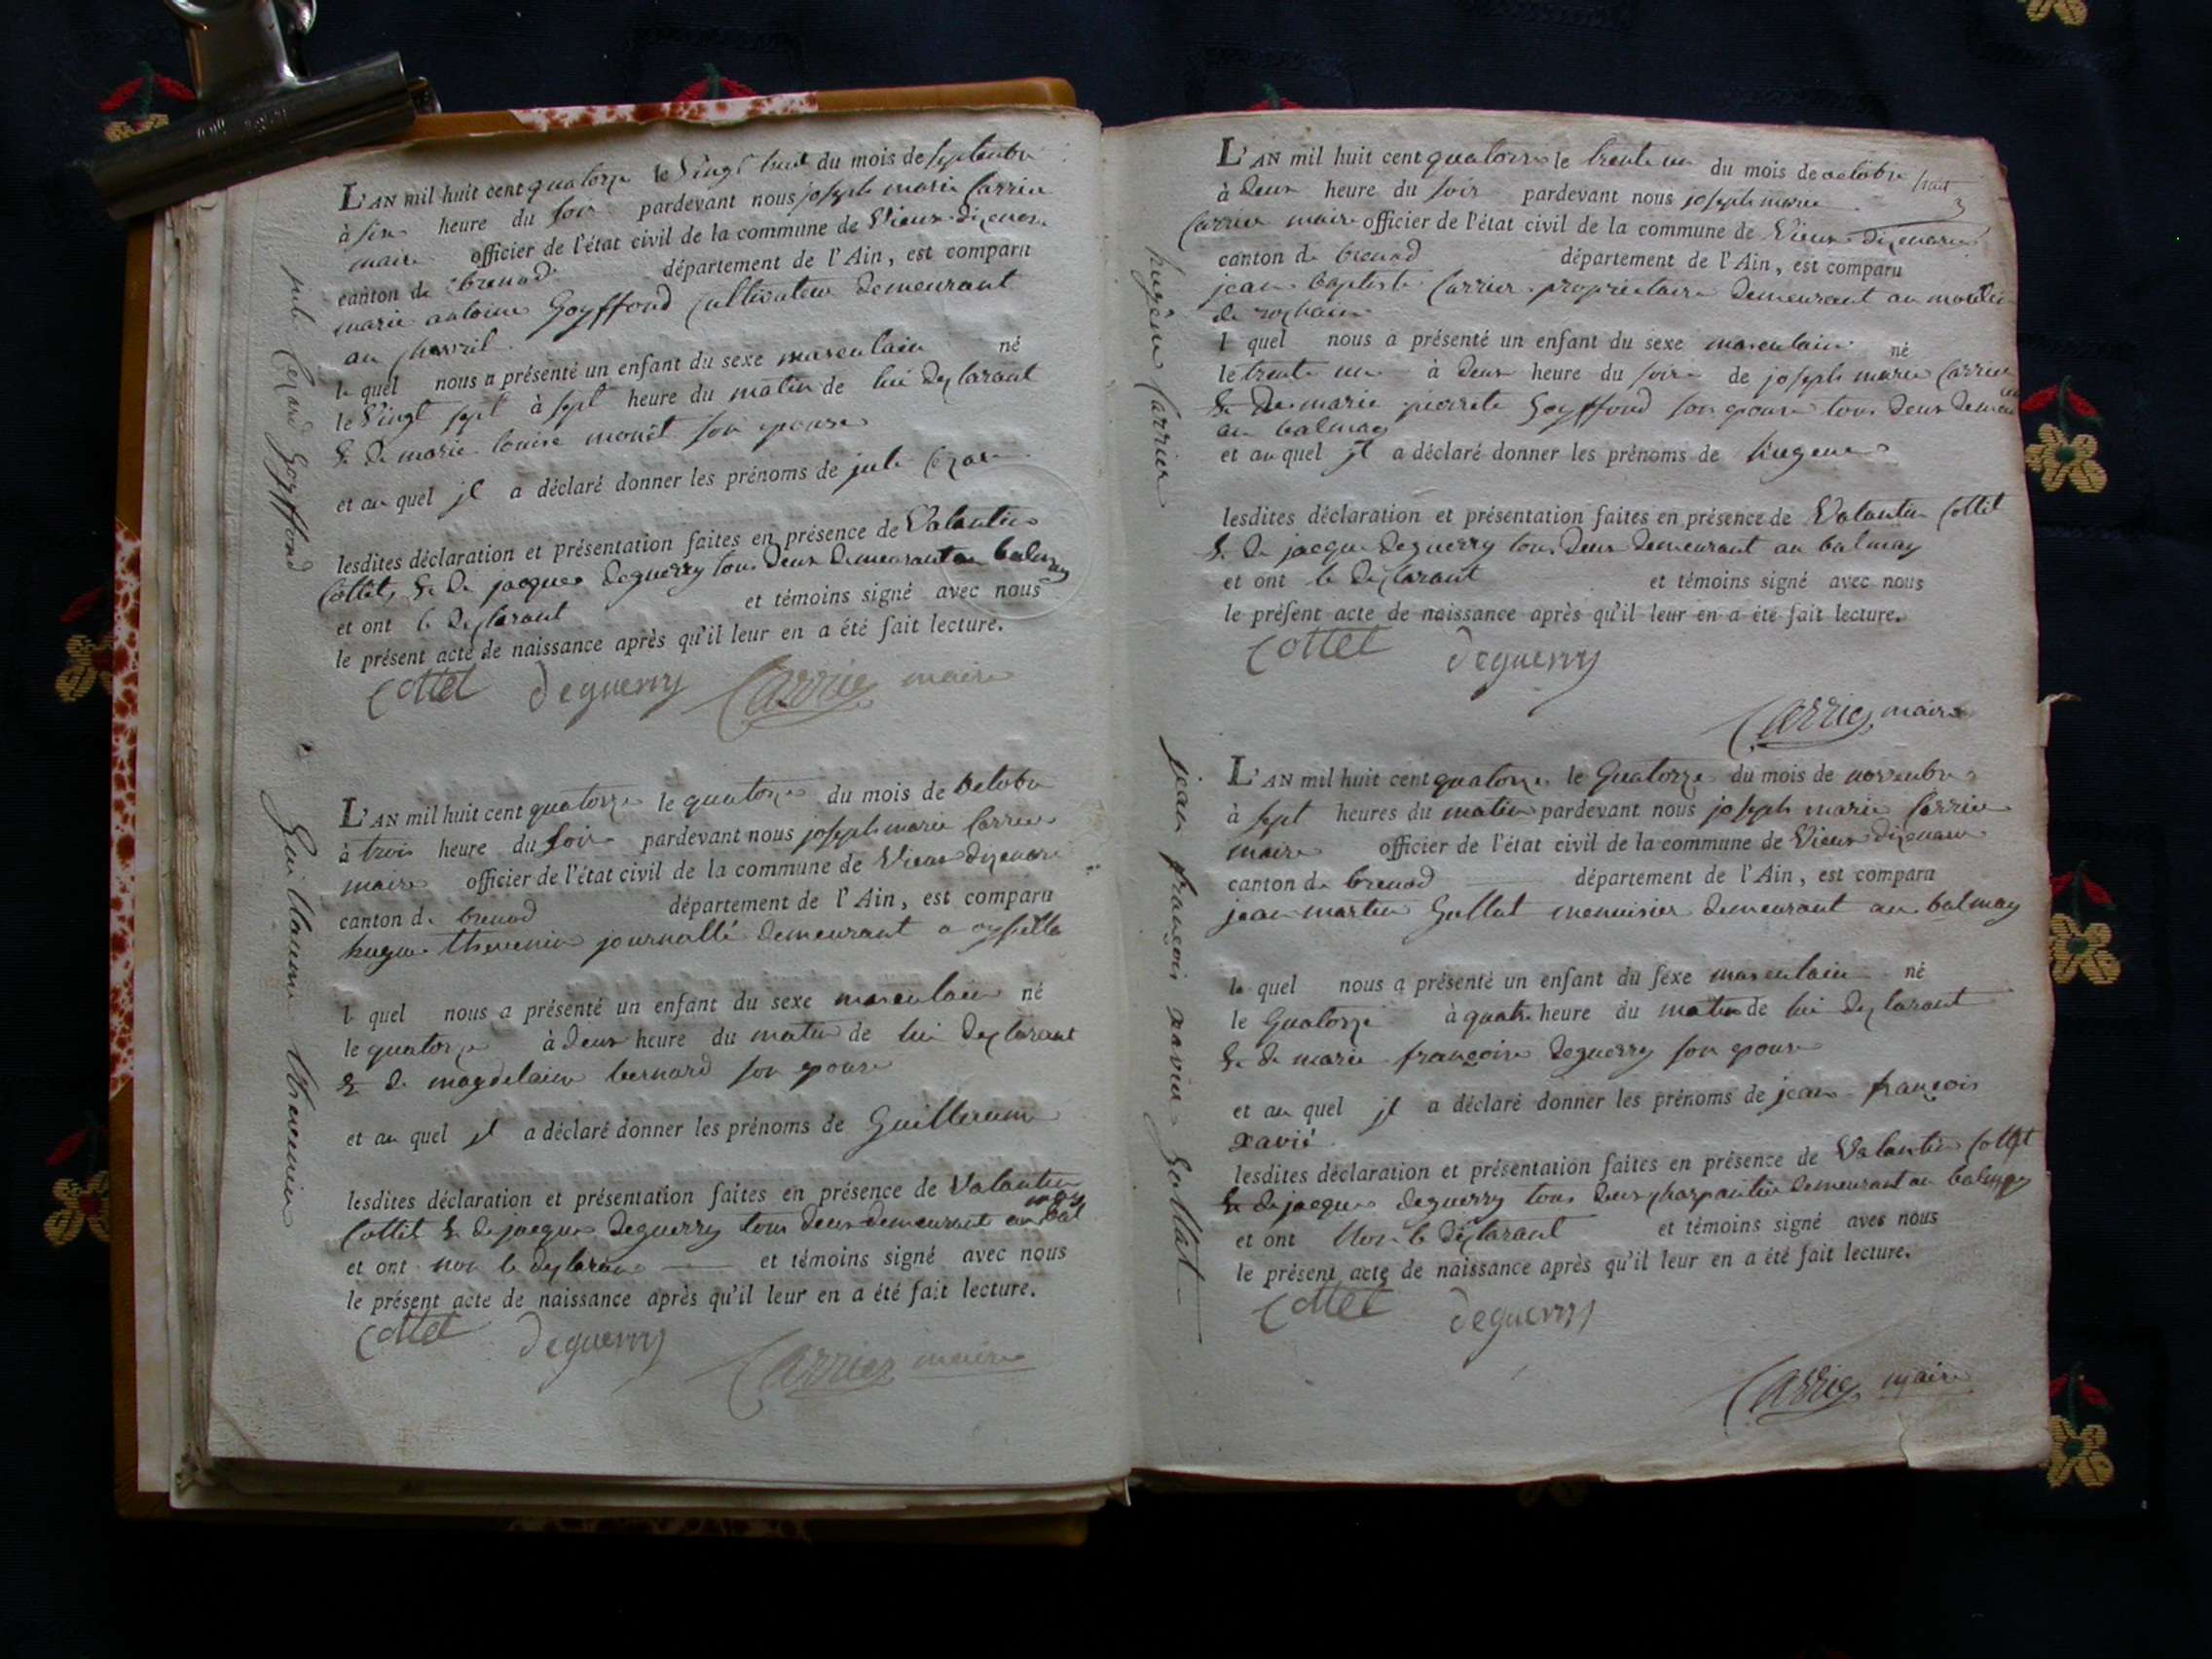 L'AN mil huit cent quatorze le Vingt huit du mois de septembre
à six heure du soir pardevant nous joseph marie Carrier
maire officier de l'état civil de la commune de Vieux dizenave
canton de brenod département de l'Ain, est comparu
marie antoine Goyffond cultivateur demeurant
au
le quel nous a présenté un enfant du sexe masculain né
le Vingt sept à sept heure du matin de lui declarant
& de marie louise monèt son epouse
et au quel jl a déclaré donner les prénoms de jule Cezar
lesdites déclaration et présentation faites en présence de Valantin
Cottet, & de jacques deguerry tous deux demeurant au balmay
et ont le declarant et témoins signé avec nous
le présent acte de naissance après qu'il leur en a été fait lecture.
Cottet deguerry Carrier maire
jule Cezard Goyffond
L'AN mil huit cent quatorze le quatorze du mois de octobre
à trois heure du soir pardevant nous joseph marie Carrier
maire officier de l'état civil de la commune de Vieux dizenave
canton de brenod département de l'Ain, est comparu
hugue thevenin journallié demeurant a
le quel nous a présenté un enfant du sexe masculain né
le quatorze à deux heure du matin de lui declarant
& de magdelaine bernard son epouse
et au quel jl a déclaré donner les prénoms de Guillaume
lesdites déclaration et présentation faites en présence de Valantin
Cottet & de jacque deguerry tous deux demeurant au balmay
et ont non le declarant et témoins signé avec nous
le présent acte de naissance après qu'il leur en a été fait lecture.
Cottet deguerry Carrier maire
Guillaume thevenin
L'AN mil huit cent quatorze le trente un du mois de octobre
à deux heure du soir pardevant nous joseph marie
Carrier maire officier de l'état civil de la commune de Vieux dizenave
canton de brenod département de l'Ain, est comparu
jean baptiste Carrier propriétaire demeurant au moulin
de
le quel nous a présenté un enfant du sexe masculain né
le trente un à deux heure du soir de joseph marie Carrier
& de marie pierrete Goyffond son epouse tous deux
au balmay
et au quel jl a déclaré donner les prénoms de hugene
lesdites déclaration et présentation faites en présence de Valantin Cottet
& de jacque deguerry tous deux demeurant au balmay
et ont le declarant et témoins signé avec nous
le présent acte de naissance après qu'il leur en a été fait lecture.
Cottet deguerry
Carrier maire
hugène Carrier
L'AN mil huit cent quatorze le Quatorze du mois de novenbre
à sept heures du matin pardevant nous joseph marie Carrier
maire officier de l'état civil de la commune de Vieux dizenave
canton de brenod département de l'Ain, est comparu
jean martin Gullat menuisier demeurant au balmay
le quel nous a présenté un enfant du sexe masculain né
le Quatorze à quatre heure du matin de lui declarant
& de marie françoise deguerry son epouse
et au quel jl a déclaré donner les prénoms de jean françois
xavié
lesdites déclaration et présentation faites en présence de Valantin Cottet
& de jacques deguerry tous deux charpantier demeurant au balmay
et ont Non le declarant et témoins signé avec nous
le présent acte de naissance après qu'il leur en a été fait lecture.
Cottet deguerry
Carrier maire
jean françois xavier Gullat